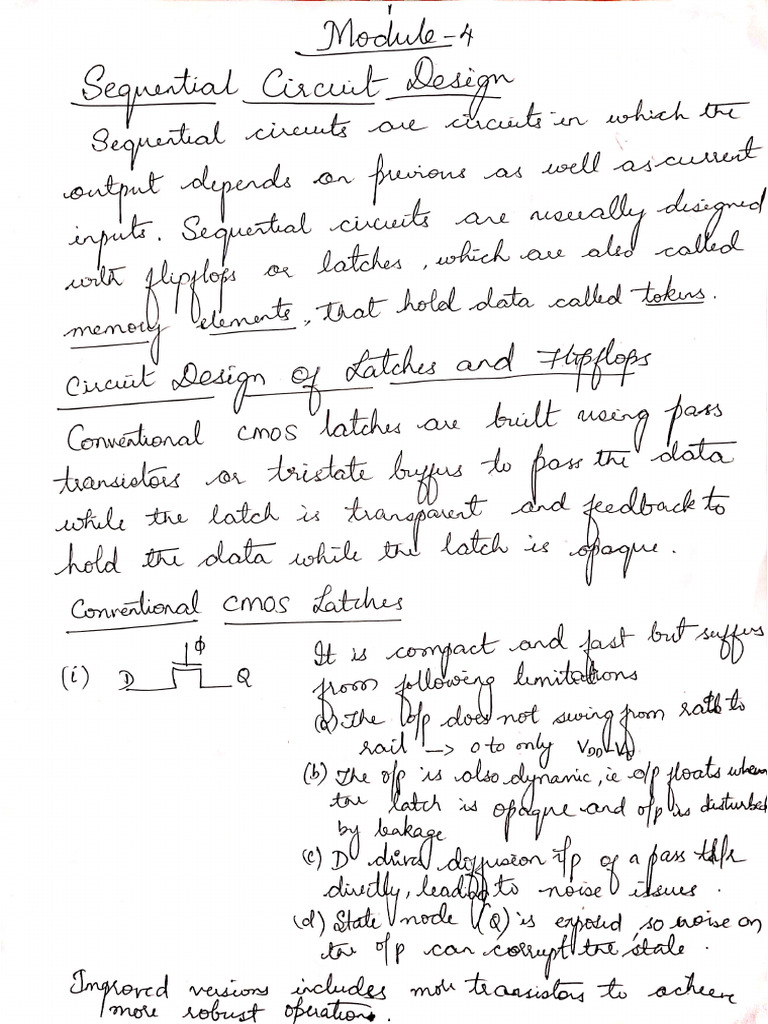 Module-4
Sequential Circuit Design
Sequential circuits are circuits in which the
output depends on previous as well as current
inputs. Sequential circuits are usually designed
with flipflops or latches, which are also called
memory elements, that hold data called tokens.
Circuit Design of Latches and Flipflops
Conventional CMOS latches are built using pass
transistors or tristate buffers to pass the data
while the latch is transparent and feedback to
hold the data while the latch is opaque.
Conventional CMOS Latches
(i) D Φ Q
It is compact and fast but suffers
from following limitations
(a) The o/p does not swing from rail to
rail → 0 to only VDD-Vt
(b) The o/p is also dynamic, ie o/p floats when
the latch is opaque and o/p is disturbed
by leakage
(c) D drives diffusion i/p of a pass
directly, leading to noise issues.
(d) State node (Q) is exposed, so noise on
the o/p can corrupt the state.
Improved versions includes more transistors to achieve
more robust operation.